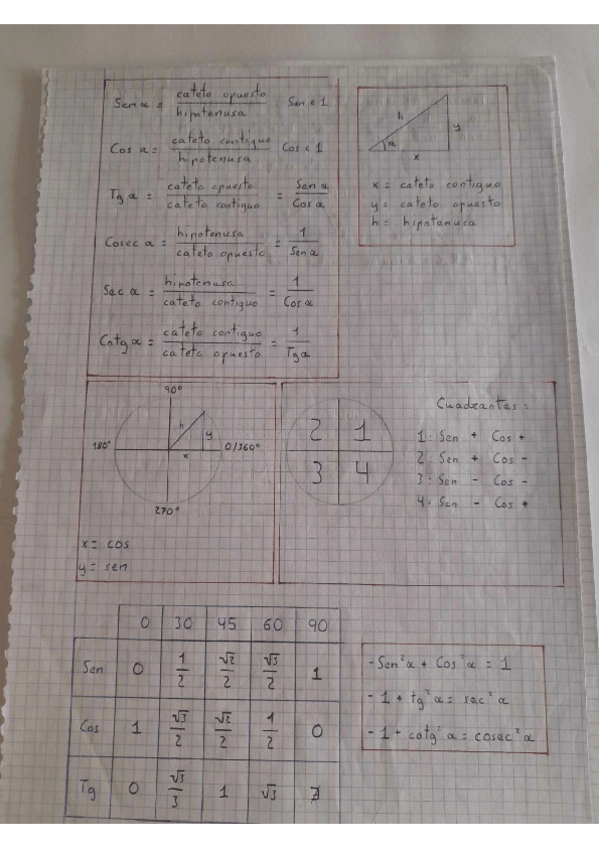 Sen α = cateto opuesto / hipotenusa Sen < 1
Cos α = cateto contiguo / hipotenusa Cos < 1
Tg α = cateto opuesto / cateto contiguo = Sen α / Cos α
Cosec α = hipotenusa / cateto opuesto = 1 / Sen α
Sec α = hipotenusa / cateto contiguo = 1 / Cos α
Cotg α = cateto contiguo / cateto opuesto = 1 / Tg α
h
y
α
x
x = cateto contiguo
y = cateto opuesto
h = hipotanusa
90º
h
y
180º x 0/360º
270º
x = cos
y = sen
2 1
3 4
Cuadrantes:
1: Sen + Cos +
2: Sen + Cos -
3: Sen - Cos -
4: Sen - Cos +
0 30 45 60 90
Sen 0 1/2 √2/2 √3/2 1
Cos 1 √3/2 √2/2 1/2 0
Tg 0 √3/3 1 √3 ∄
- Sen²α + Cos²α = 1
- 1 + tg²α = sec²α
- 1 + cotg²α = cosec²α